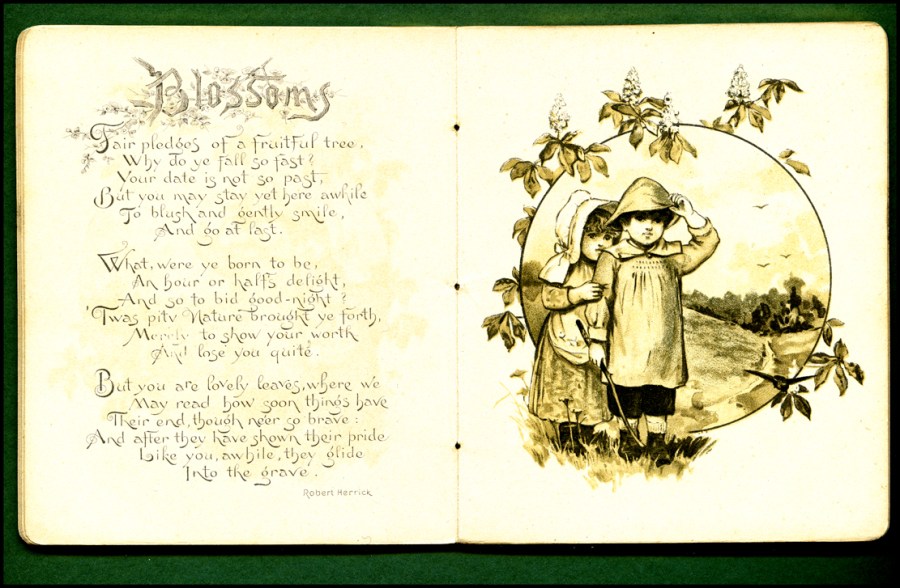 Blossoms
Fair pledges of a fruitful tree,
Why do ye fall so fast?
Your date is not so past,
But you may stay yet here awhile
To blush and gently smile,
And go at last.
What, were ye born to be,
An hour or half's delight,
And so to bid good-night?
'Twas pity Nature brought ye forth,
Merely to show your worth
And lose you quite.
But you are lovely leaves, where we
May read how soon things have
Their end, though ne'er so brave:
And after they have shown their pride
Like you, awhile, they glide
Into the grave.
Robert Herrick